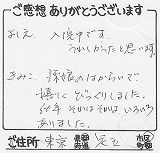 ご感想 ありがとうございます
よしえ 入院中です。
うれしかったと思います
きみこ 孫娘のはからいで
嬉しくびっくりしました。
それはそれは いろいろ
ありました
ご住所 東京 都道府県 足立 市区町村